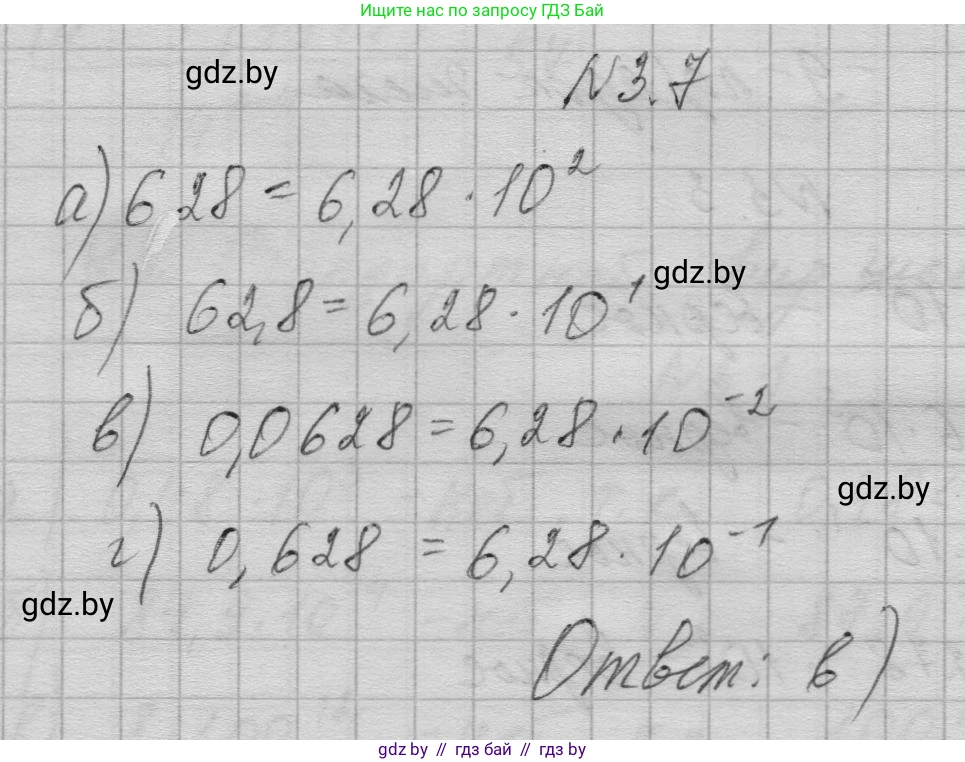 Ищите нас по запросу ГДЗ Бай
gdz.by
N 3.7
а) 628 = 6,28 · 10²
б) 62,8 = 6,28 · 10¹
gdz.by
в) 0,0628 = 6,28 · 10⁻²
gdz.by
г) 0,628 = 6,28 · 10⁻¹
gdz.by
Ответ: в)
gdz.by // гдз бай // гдз by